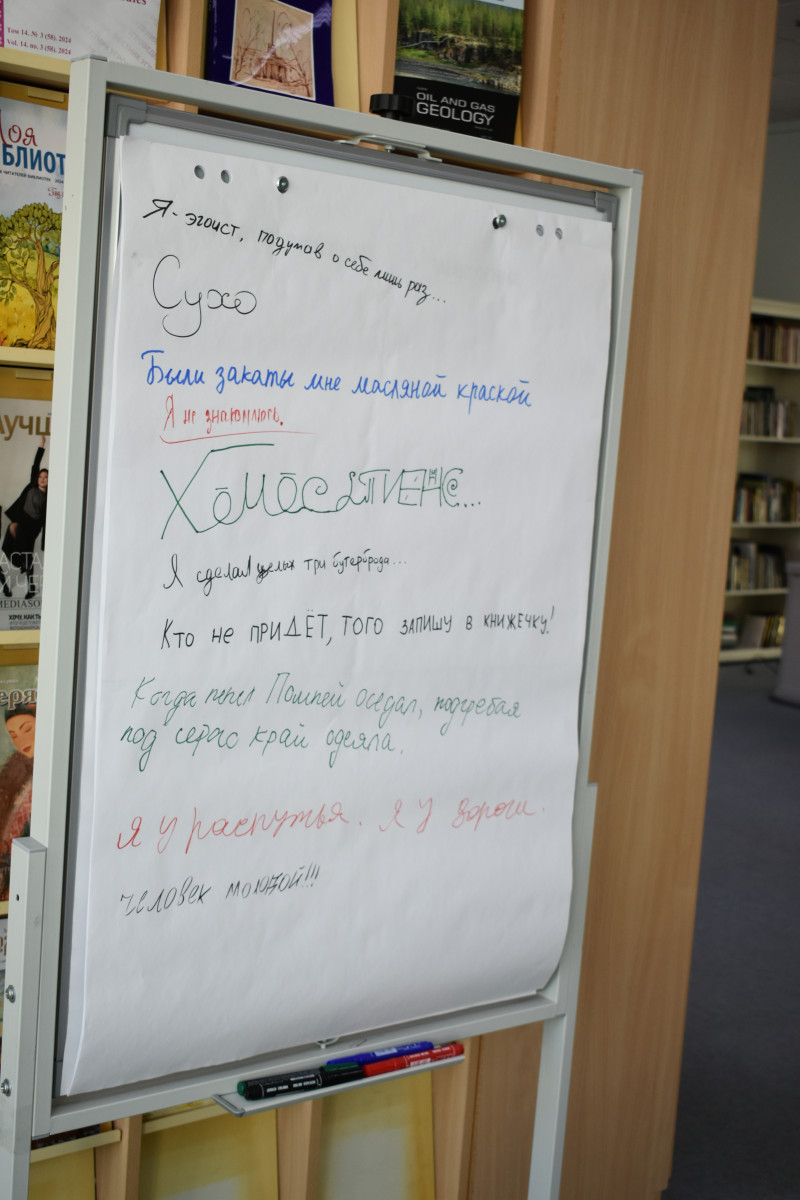 Том 14, № 3 (58), 2024
Vol. 14, no. 3 (58), 2024
OIL AND GAS
GEOLOGY
Моя
БЛИОТ
Я - эгоист, подумав о себе лишь раз...
Сухо
Были закаты мне масляной краской
Я не знакомлюсь.
ХОМОСАПИЕНС...
Я сделал целых три бутерброда...
КТО НЕ ПРИДЁТ, ТОГО ЗАПИШУ В КНИЖЕЧКУ!
Когда пепел Помпей оседал, подгребая
под серго край одеяла.
Я у распутья. Я у дороги.
ЧЕЛОВЕК МОЛОДОЙ!!!
ЛУЧШ
MEDIASO